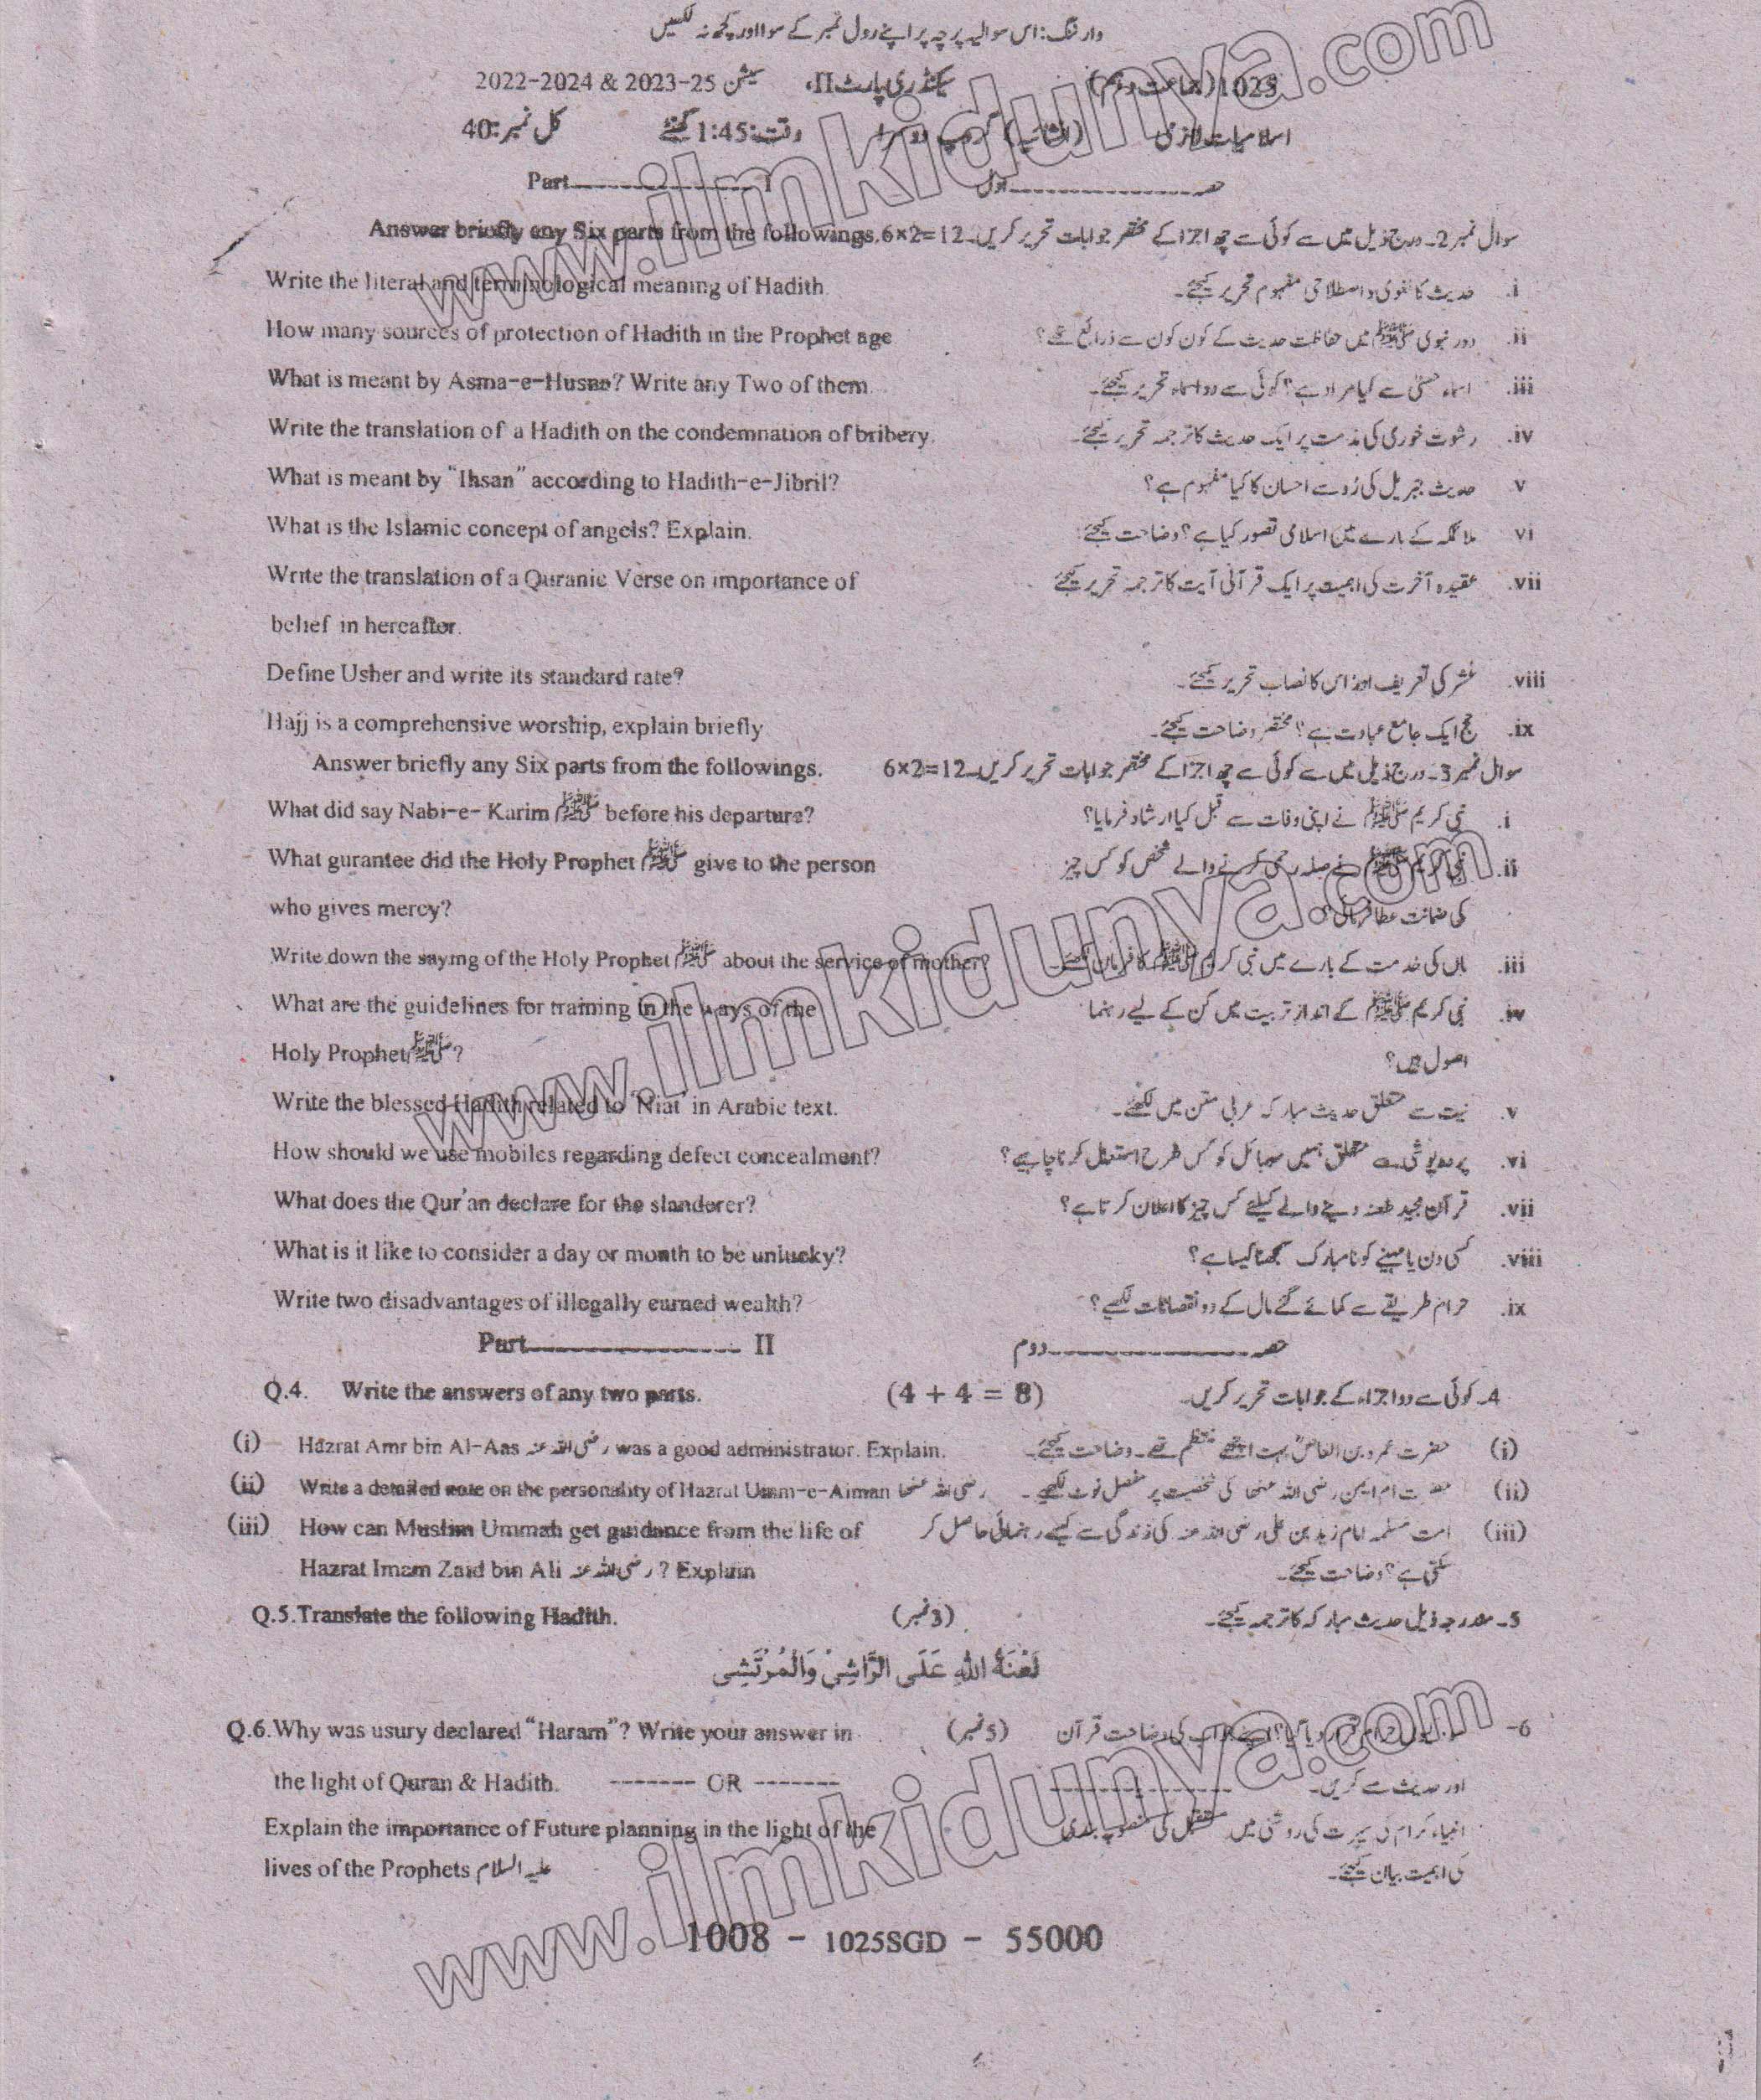 وارننگ: اس سوالیہ پرچہ پر اپنے رول نمبر کے سوا اور کچھ نہ لکھیں
1025 (جماعت دہم) سیکنڈری پارٹ II، سیشن 2022-2024 & 2023-25
اسلامیات لازمی (انشائیہ) گروپ دوسرا وقت: 1:45 گھنٹے کل نمبر: 40
Part I حصہ اول
Answer briefly any Six parts from the followings. 6×2=12 سوال نمبر 2۔ درج ذیل میں سے کوئی سے چھ اجزا کے مختصر جوابات تحریر کریں۔
Write the literal and terminological meaning of Hadith i. حدیث کا لغوی و اصطلاحی مفہوم تحریر کیجئے۔
How many sources of protection of Hadith in the Prophet age ii. دور نبوی ﷺ میں حفاظت حدیث کے کون کون سے ذرائع تھے؟
What is meant by Asma-e-Husna? Write any Two of them. iii. اسماء حسنٰی سے کیا مراد ہے؟ کوئی سے دو اسماء تحریر کیجئے۔
Write the translation of a Hadith on the condemnation of bribery. iv. رشوت خوری کی مذمت پر ایک حدیث کا ترجمہ تحریر کیجئے۔
What is meant by "Ihsan" according to Hadith-e-Jibril? v حدیث جبریل کی رُو سے احسان کا کیا مفہوم ہے؟
What is the Islamic concept of angels? Explain. vi ملائکہ کے بارے میں اسلامی تصور کیا ہے؟ وضاحت کیجئے۔
Write the translation of a Quranic Verse on importance of vii. عقیدہ آخرت کی اہمیت پر ایک قرآنی آیت کا ترجمہ تحریر کیجئے
belief in hereafter.
Define Usher and write its standard rate? viii. عُشر کی تعریف اور اس کا نصاب تحریر کیجئے۔
Hajj is a comprehensive worship, explain briefly ix. حج ایک جامع عبادت ہے؟ مختصر وضاحت کیجئے۔
Answer briefly any Six parts from the followings. 6×2=12 سوال نمبر 3۔ درج ذیل میں سے کوئی سے چھ اجزا کے مختصر جوابات تحریر کریں۔
What did say Nabi-e- Karim ﷺ before his departure? i. نبی کریم ﷺ نے اپنی وفات سے قبل کیا ارشاد فرمایا؟
What gurantee did the Holy Prophet ﷺ give to the person ii. نبی کریم ﷺ نے صلہ رحمی کرنے والے شخص کو کس چیز
who gives mercy? کی ضمانت عطا فرمائی؟
Write down the saying of the Holy Prophet ﷺ about the service of mother? iii. ماں کی خدمت کے بارے میں نبی کریم ﷺ کا فرمان لکھئے۔
What are the guidelines for training in the ways of the iv. نبی کریم ﷺ کے انداز تربیت میں کن کے لیے رہنما
Holy Prophet ﷺ? اصول ہیں؟
Write the blessed Hadith related to 'Niat' in Arabic text. v. نیت سے متعلق حدیث مبارکہ عربی متن میں لکھئے۔
How should we use mobiles regarding defect concealment? vi. پردہ پوشی سے متعلق ہمیں موبائل کو کس طرح استعمال کرنا چاہیے؟
What does the Qur'an declare for the slanderer? vii. قرآن مجید طعنہ دینے والے کیلئے کس چیز کا اعلان کرتا ہے؟
What is it like to consider a day or month to be unlucky? viii. کسی دن یا مہینے کو نامبارک سمجھنا کیسا ہے؟
Write two disadvantages of illegally earned wealth? ix. حرام طریقے سے کمائے گئے مال کے دو نقصانات لکھیے؟
Part II حصہ دوم
Q.4. Write the answers of any two parts. (4 + 4 = 8) 4۔ کوئی سے دو اجزاء کے جوابات تحریر کریں۔
(i) Hazrat Amr bin Al-Aas رضی اللہ عنہ was a good administrator. Explain. (i) حضرت عمرو بن العاصؓ بہت اچھے منتظم تھے۔ وضاحت کیجئے۔
(ii) Write a detailed note on the personality of Hazrat Umm-e-Aiman رضی اللہ عنھا (ii) حضرت ام ایمن رضی اللہ عنھا کی شخصیت پر مفصل نوٹ لکھیے۔
(iii) How can Muslim Ummah get guidance from the life of (iii) امت مسلمہ امام زید بن علی رضی اللہ عنہ کی زندگی سے کیسے رہنمائی حاصل کر
Hazrat Imam Zaid bin Ali رضی اللہ عنہ? Explain سکتی ہے؟ وضاحت کیجئے۔
Q.5. Translate the following Hadith. (3 نمبر) 5۔ مندرجہ ذیل حدیث مبارکہ کا ترجمہ کیجئے۔
لَعْنَةُ اللهِ عَلَى الرَّاشِيْ وَالْمُرْتَشِي
Q.6. Why was usury declared "Haram"? Write your answer in (5 نمبر) 6- سود کیوں حرام قرار دیا گیا؟ اپنے جواب کی وضاحت قرآن
the light of Quran & Hadith. ------- OR ------- اور حدیث سے کریں۔
Explain the importance of Future planning in the light of the انبیاء کرام کی سیرت کی روشنی میں مستقبل کی منصوبہ بندی
lives of the Prophets علیہ السلام کی اہمیت بیان کیجئے۔
1008 - 1025SGD - 55000
www.ilmkidunya.com
www.ilmkidunya.com
www.ilmkidunya.com